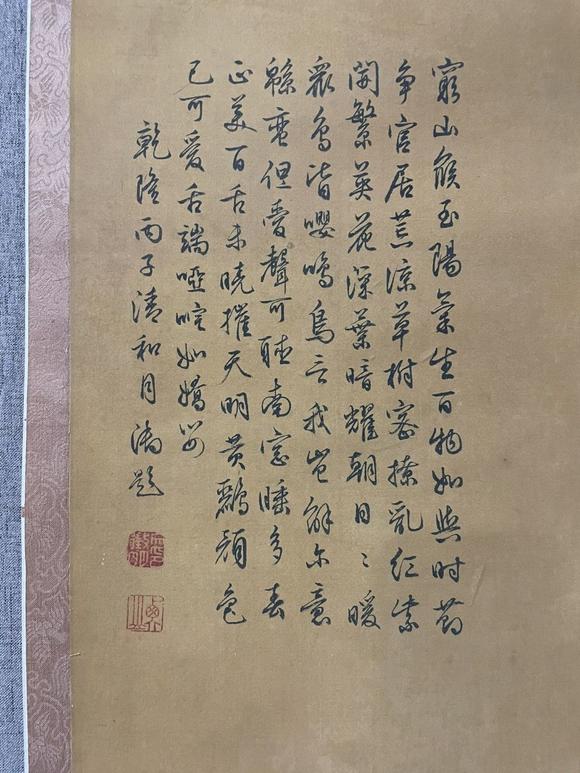 窮山候至陽氣生百物如與時節
爭官居荒涼草樹密撩亂紅紫
開繁英花深葉暗耀朝日〻暖
眾鳥皆嚶鳴鳥言我豈解尔意
緜蠻但愛聲可聽南窗睡多春
正美百舌未曉催天明黃鸝顏色
已可愛舌端啞咤如嬌嬰
乾隆丙子清和月題